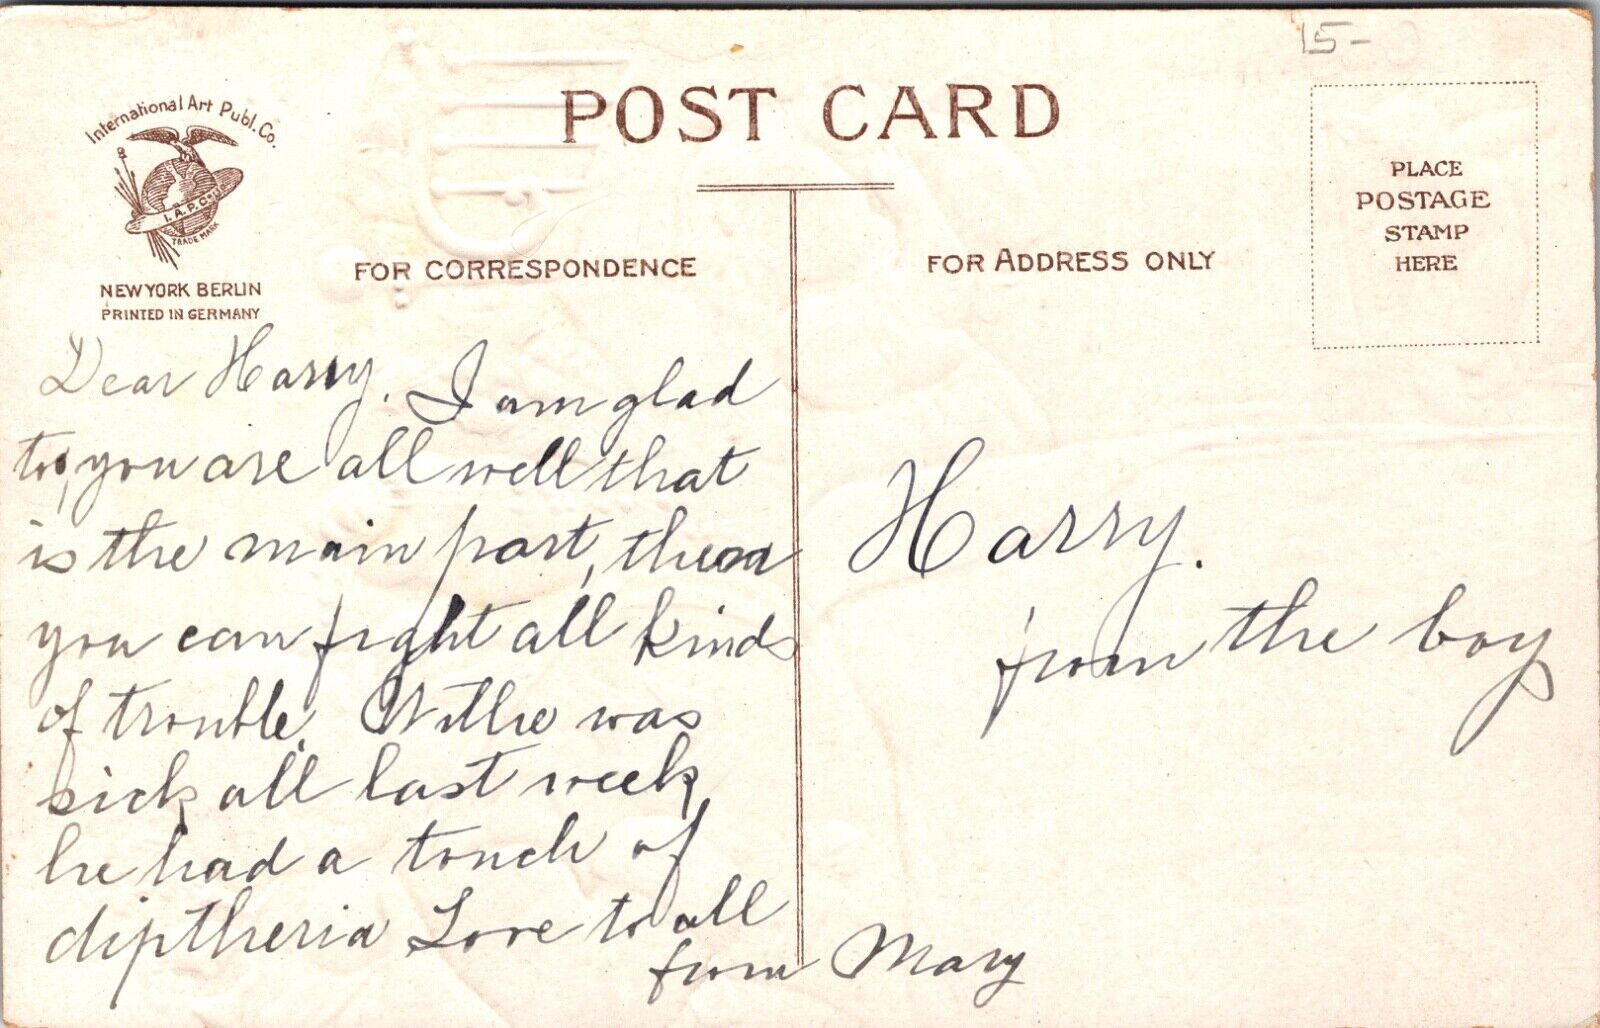 15-
International Art Publ. Co.
I. A. P. Co.
TRADE MARK
NEW YORK BERLIN
PRINTED IN GERMANY
POST CARD
FOR CORRESPONDENCE
FOR ADDRESS ONLY
PLACE
POSTAGE
STAMP
HERE
Dear Harry. I am glad
to, you are all well that
is the main part,
you can fight all kinds
of trouble. Willie was
sick all last week,
he had a touch of
diptheria Love to all
from Mary
Harry.
from the boy